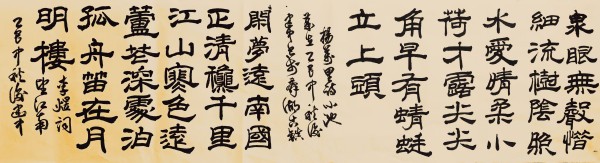 泉眼無聲惜
細流樹陰照
水愛晴柔小
荷才露尖尖
角早有蜻蜓
立上頭
楊萬里詩小池
乙巳中秋後
閑夢遠南國
正清穐千里
江山寒色遠
蘆花深處泊
孤舟笛在月
明樓
李煜詞
望江南
乙巳中秋後